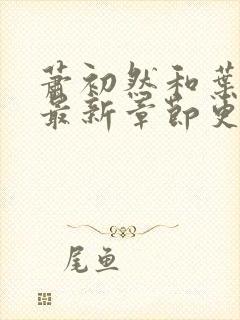 萧初然和葉
最新章節更
尾鱼